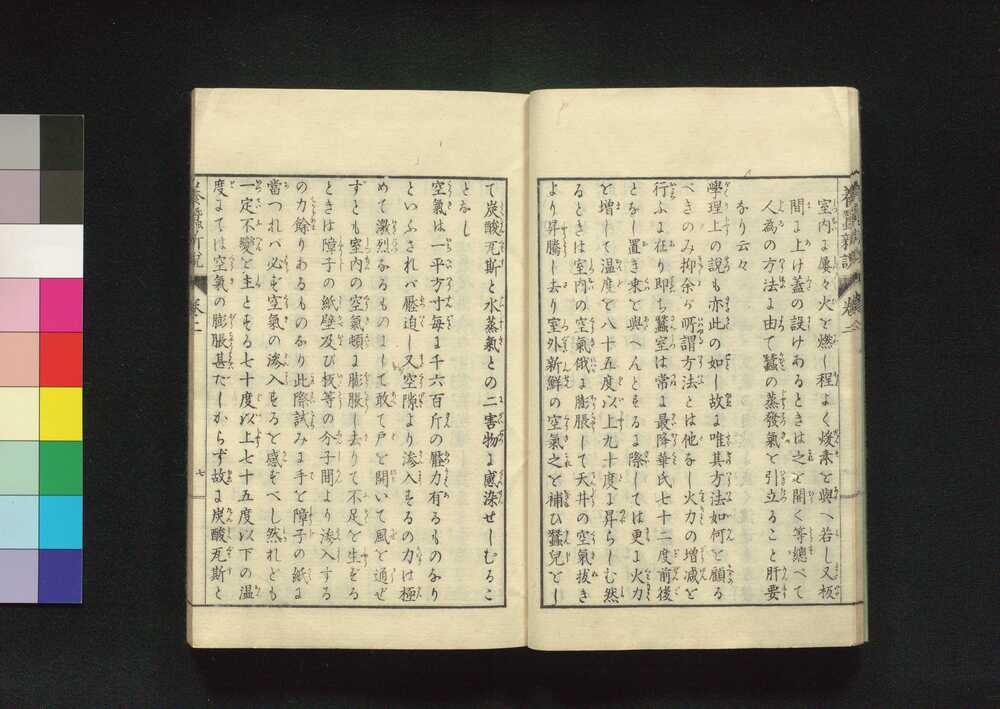 養蠶新説
卷二
室内ょ屢々火を燃し程よく焌柔を與へ若し又板
間ょ上け蓋の設けあるときは之を開く等總べて
人為の方法ょ由て蠶の蒸發氣を引立ること肝要
なり云々
學理上の説も亦此の如し故ょ唯其方法如何を顧る
べきのみ抑余が所謂方法とは他なし火力の增減を
行ふょ在り即ち蠶室は常ょ最降華氏七十二度前後
となし置き桒を與へんとするょ際しては更ょ火力
を增して温度を八十五度以上九十度ょ昇らしむ然
るときは室内の空氣俄ょ膨脹して天井の空氣拔き
より昇騰し去り室外新鮮の空氣之を補ひ蠶兒をし
て炭酸瓦斯と水蒸氣との二害物ょ感染せしむるこ
となし
空氣は一平方寸每ょ千六百斤の壓力有るものなり
といふされバ壓迫し又空隙より滲入するの力は極
めて激烈なるものょして敢て戸を開いて風を通ぜ
ずとも室内の空氣頓ょ膨脹し去りて不足を生ずる
ときは障子の紙壁及び板等の分子間より滲入する
の力餘りあるものなり此際試みょ手を障子の紙ょ
當つれバ必ず空氣の滲入するを感ずべし然れども
一定不變を主とする七十度以上七十五度以下の温
度ょては空氣の膨脹甚だしからず故ょ炭酸瓦斯と
養蠶新説
卷二
七